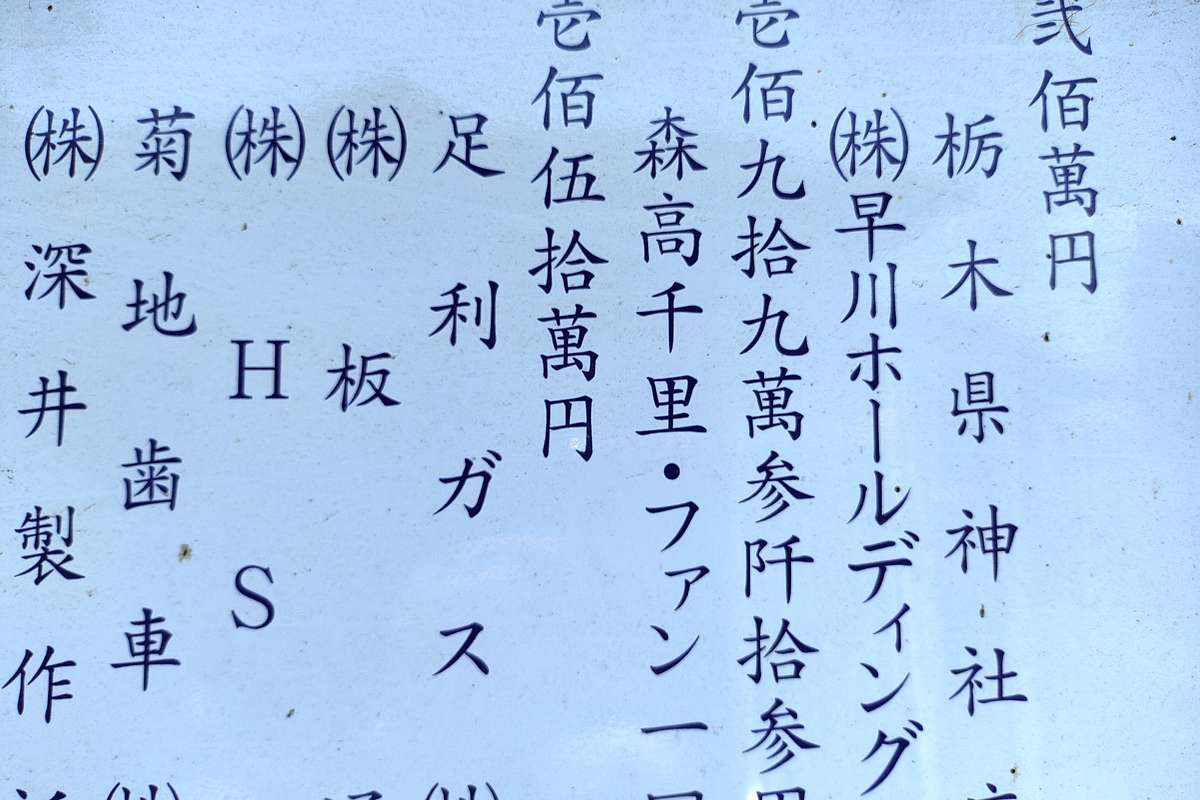 弐佰萬円
栃木県神社
㈱早川ホールディング
壱佰九拾九萬参阡拾参円
森高千里・ファン一同
壱佰伍拾萬円
足利ガス
㈱板
㈱HS
菊地歯車
㈱深井製作